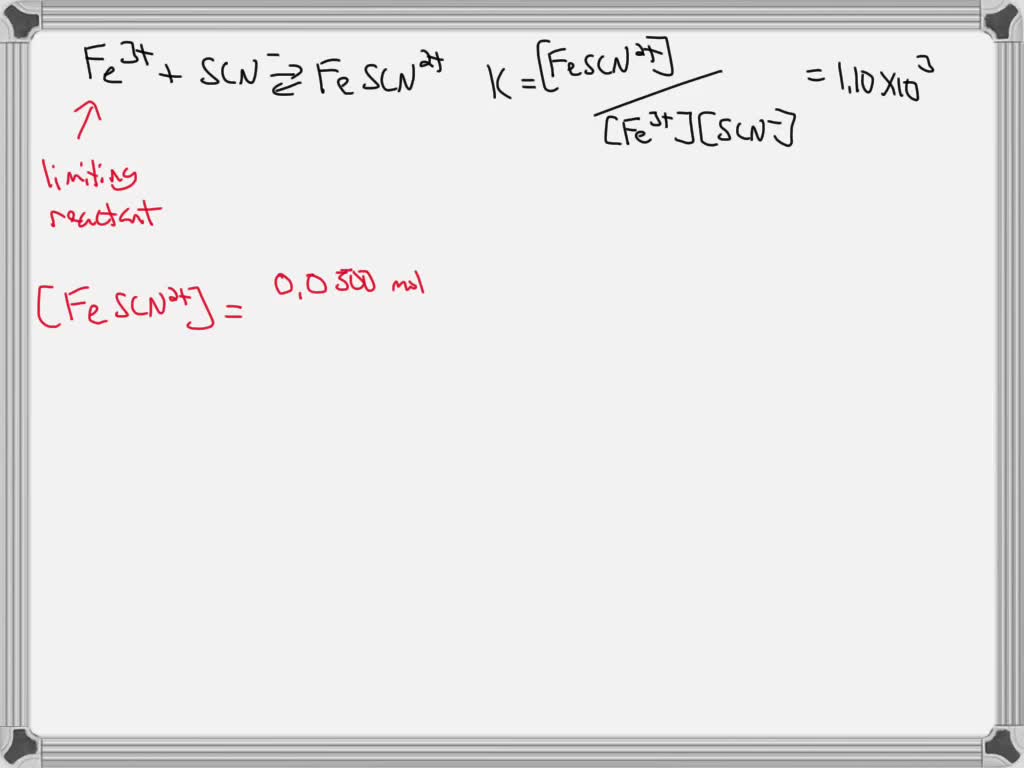 Fe³⁺ + SCN⁻ ⇌ FeSCN²⁺ K = [FeSCN²⁺] / [Fe³⁺][SCN⁻] = 1.10 × 10³
limiting
reactant
[FeSCN²⁺] = 0.0500 mol